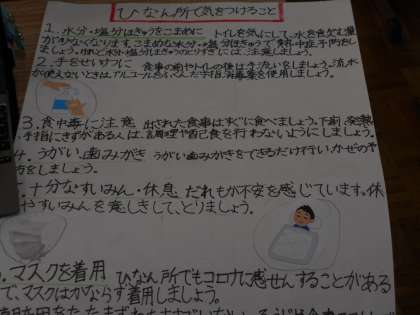 ひなん所で気をつけること
1. 水分・塩分ほきゅうをこまめに トイレを気にして、水を飲む量
が少なくなります。こまめな水分・塩分ほきゅうで 熱中症予防をし
ましょう。
2. 手をせいけつに 食事の前やトイレの後は手洗いをしましょう。流水
が使えないときは、アルコールをふくんだ手指消毒薬を使用しましょう。
3. 食中毒に注意 出された食事はすぐに食べましょう。下痢、発熱
手指にきずがある人は、調理や
を行わないようにしましょう。
うがい・歯みがき うがい歯みがきをできるだけ行い、かぜの予
防をしましょう。
十分なすいみん・休息 だれもが不安を感じています。休
すいみんを意しきして、とりましょう。
マスクを着用 ひなん所でもコロナに感せんすることがある
で、マスクはかならず着用しましょう。